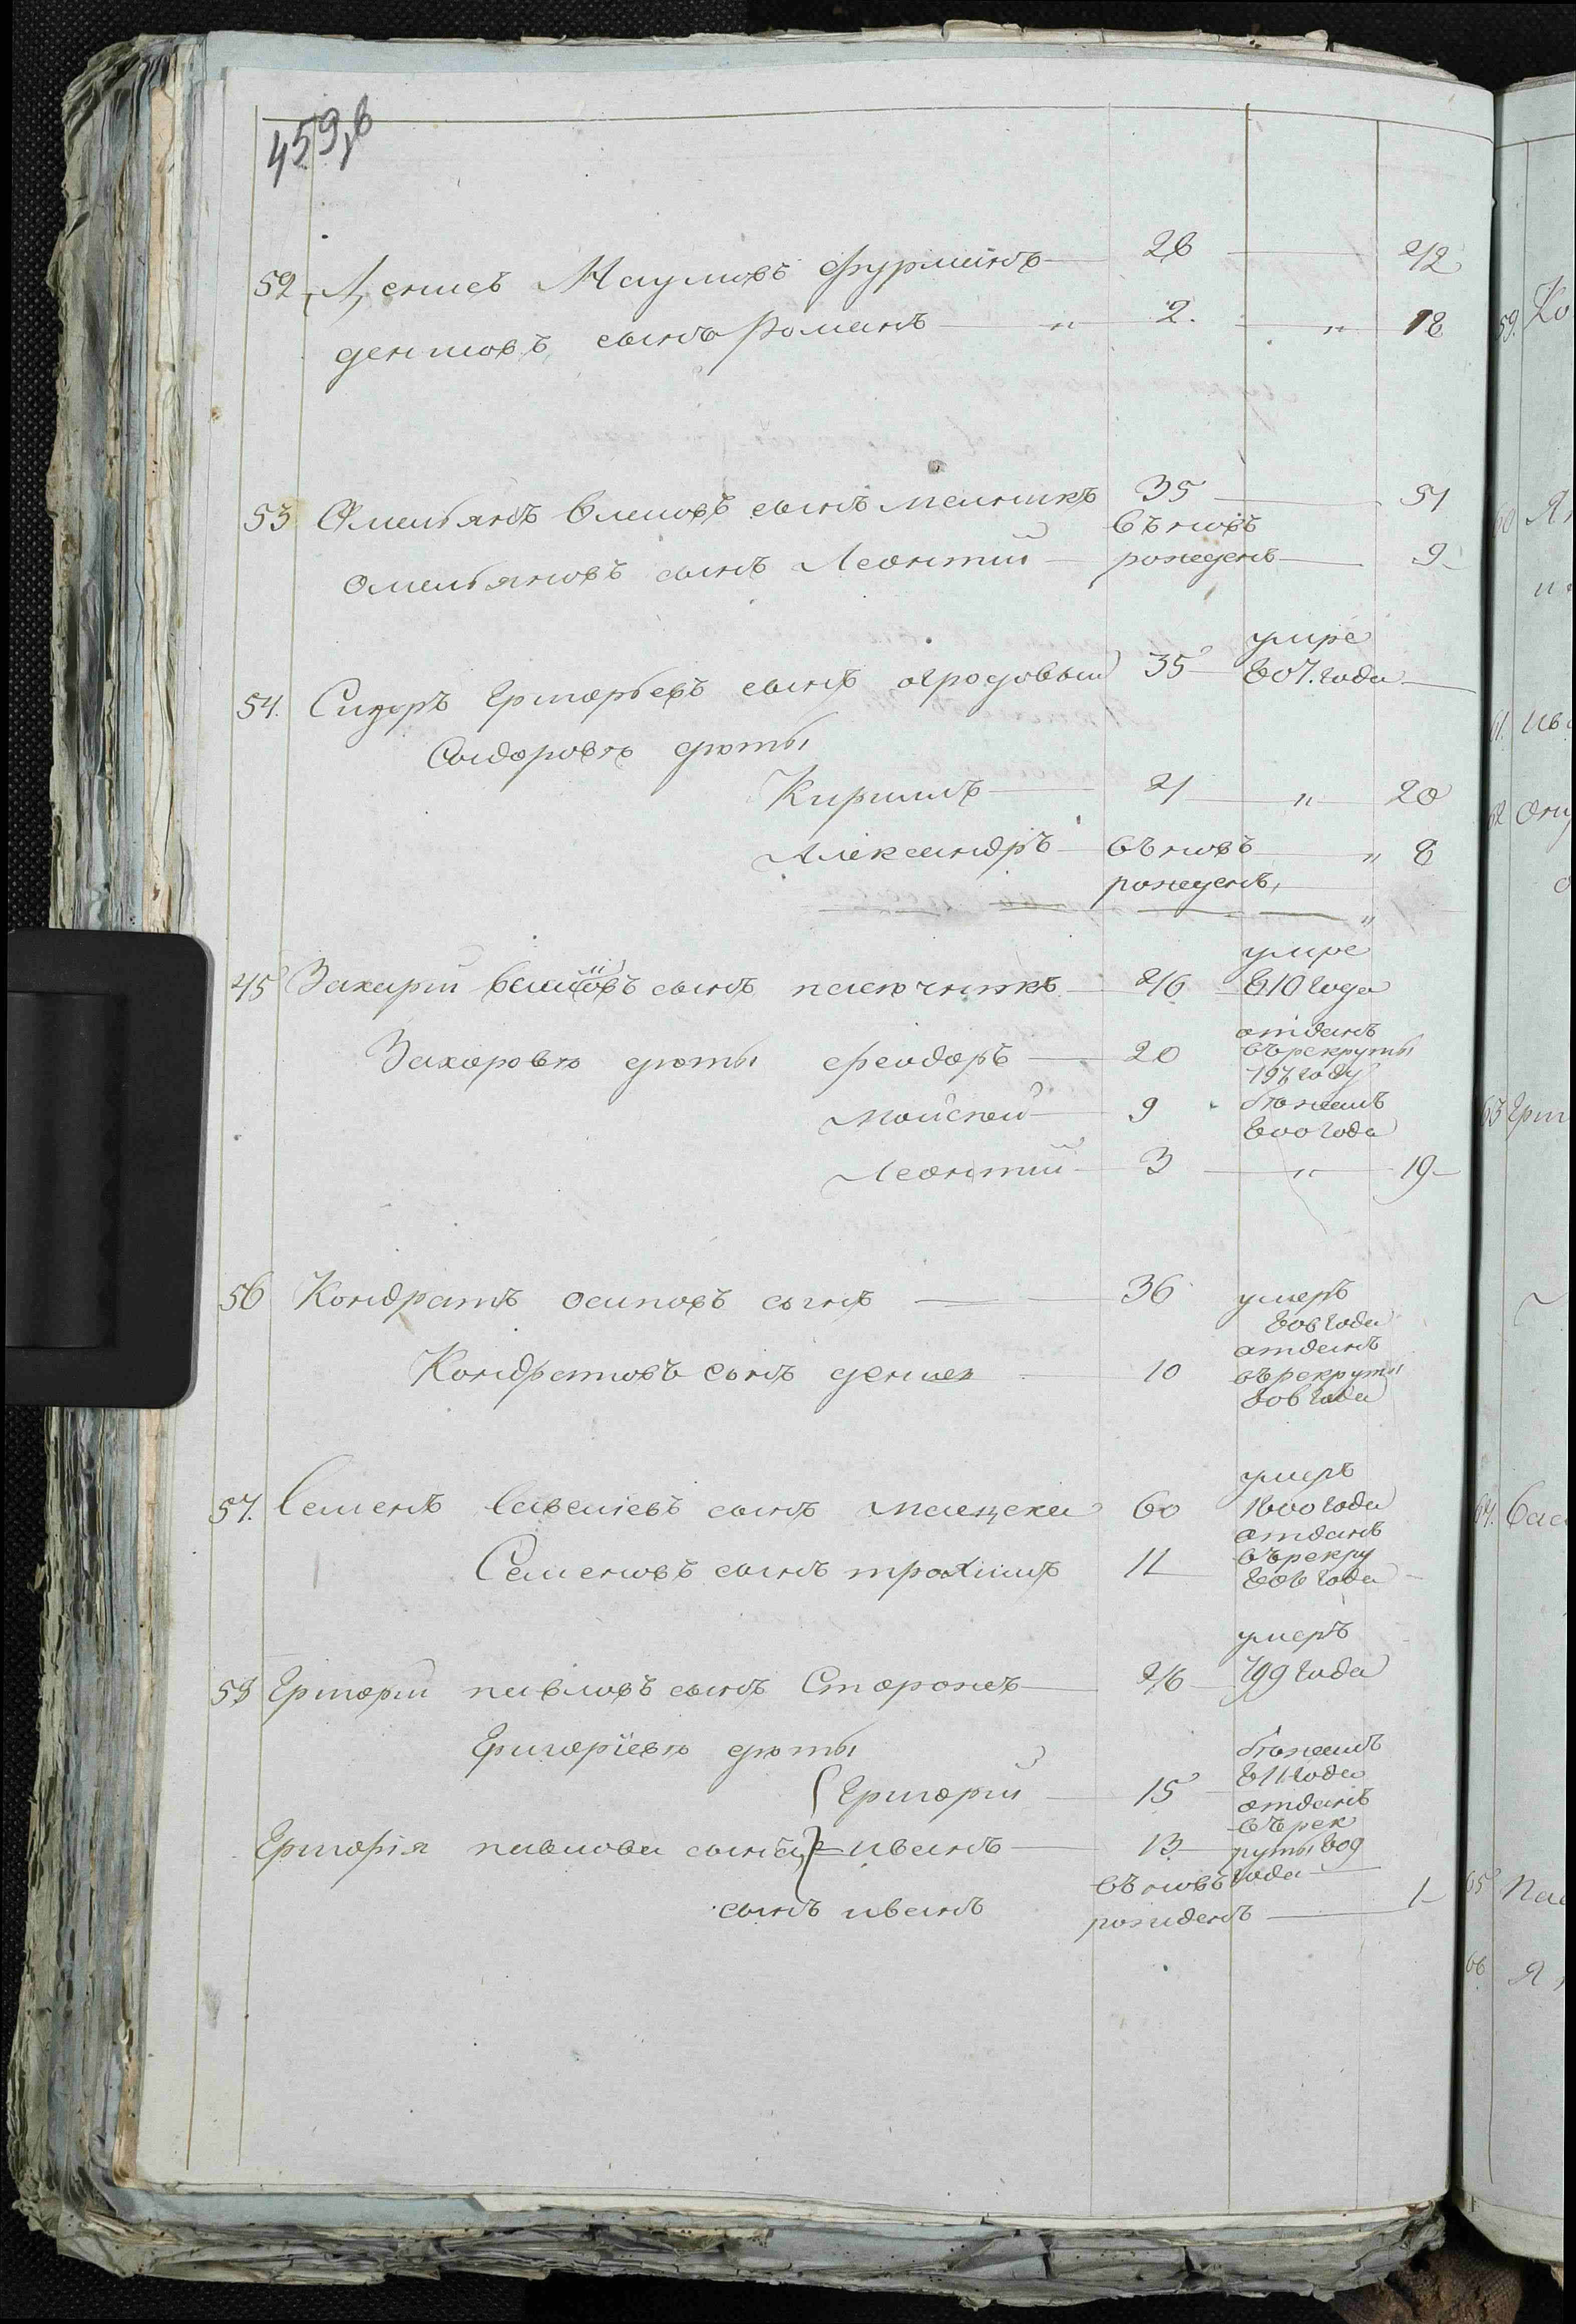 459,в
52 Денисъ Наумовъ фурманъ — 26 — 42
денисовъ сынъ Романъ — " — 2. — " — 18
53 Омельянъ сынъ мелникъ 35 — 51
Омельяновъ сынъ Леонтий — въновъ рожденъ — 9
54. Сидоръ Григорьевъ сынъ огродовый 35 — умре 807. года —
Сыдоровы дѣты
Кирилъ — 4 — " — 20
Александръ — въновъ рожденъ, — " 8
45 Захарий сынъ — 46 — умре 810 года
Захаровы дѣты феодоръ — 20 отданъ въ рекруты 797 году
Мойсей — 9 бѣжалъ 800 года
Леонтий — 3 — " — 19
56 Кондратъ осиповъ сынъ — 36 умеръ 806 года
Кондратовъ сынъ денисъ 10 отданъ въ рекруты 806 года
57. Семенъ Савелиевъ сынъ 60 умеръ 1800 года
Семеновъ сынъ трохимъ 11 отданъ въ рекру 806 года
58 Григорий павловъ сынъ Сторожъ — 46 — умеръ 799 года
Григорїевы дѣты
Григорий — 15 бѣжалъ 811 года
Григорія павлова сынъ иванъ — 13 отданъ въ рекруты 809 года
сынъ иванъ въновъ рожиденъ — 1
59. Ко
60 Я
61. Ив
62
63 Гри
64.
65 Пав
66 Я